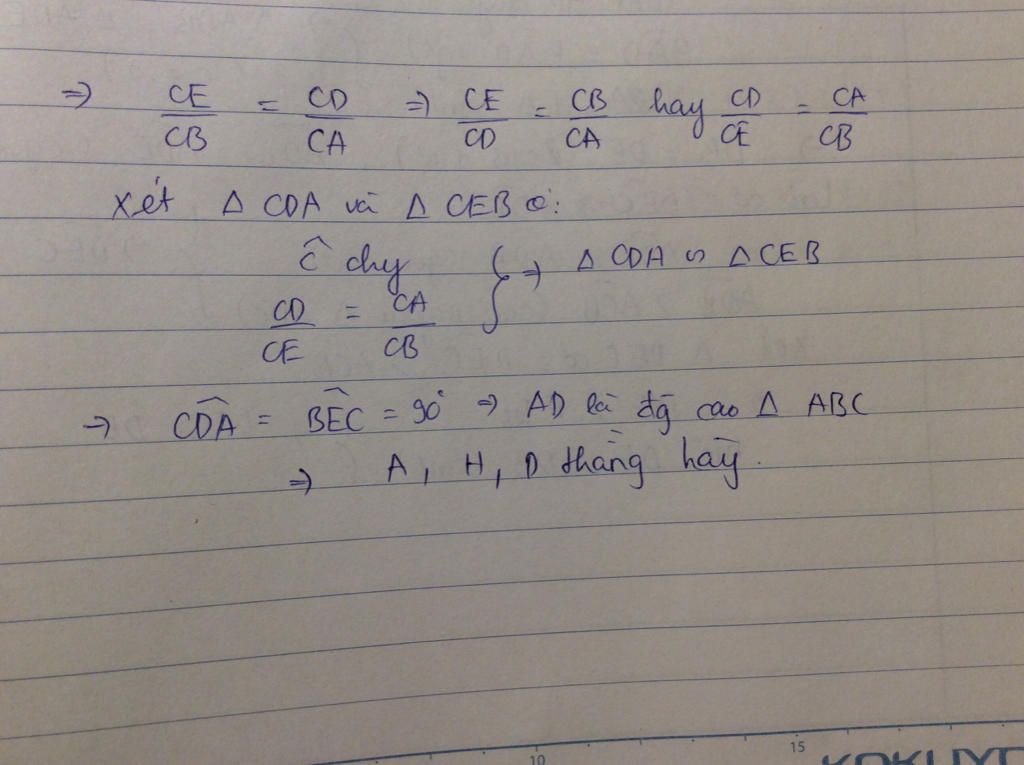 ⇒ CE/CB = CD/CA ⇒ CE/CD = CB/CA hay CD/CE = CA/CB
Xét Δ CDA và Δ CEB có:
Ĉ chg
CD/CE = CA/CB } ⇒ Δ CDA ∽ Δ CEB
⇒ CDA^ = BEC^ = 90° ⇒ AD là đg cao Δ ABC
⇒ A, H, D thẳng hàg.
10 15
KOKUYO